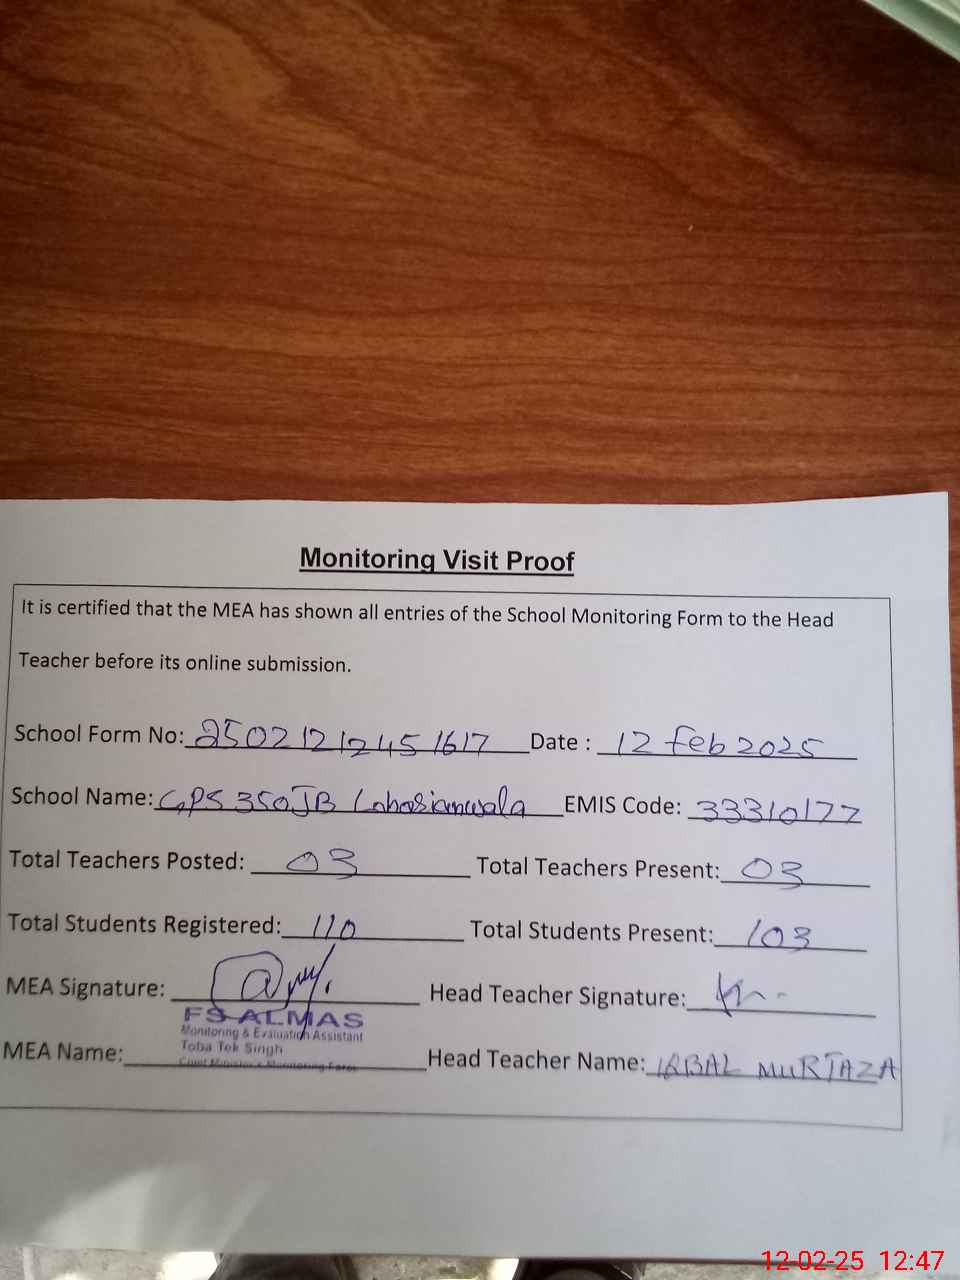 Monitoring Visit Proof
It is certified that the MEA has shown all entries of the School Monitoring Form to the Head
Teacher before its online submission.
School Form No: 25021212451617 Date : 12 Feb 2025
School Name: GPS 350JB EMIS Code: 33310177
Total Teachers Posted: 03 Total Teachers Present: 03
Total Students Registered: 110 Total Students Present: 103
MEA Signature: Head Teacher Signature:
FS ALMAS
Monitoring & Evaluation Assistant
Toba Tek Singh
Chief Minister's Monitoring Force
MEA Name: Head Teacher Name: IQBAL MURTAZA
12-02-25 12:47